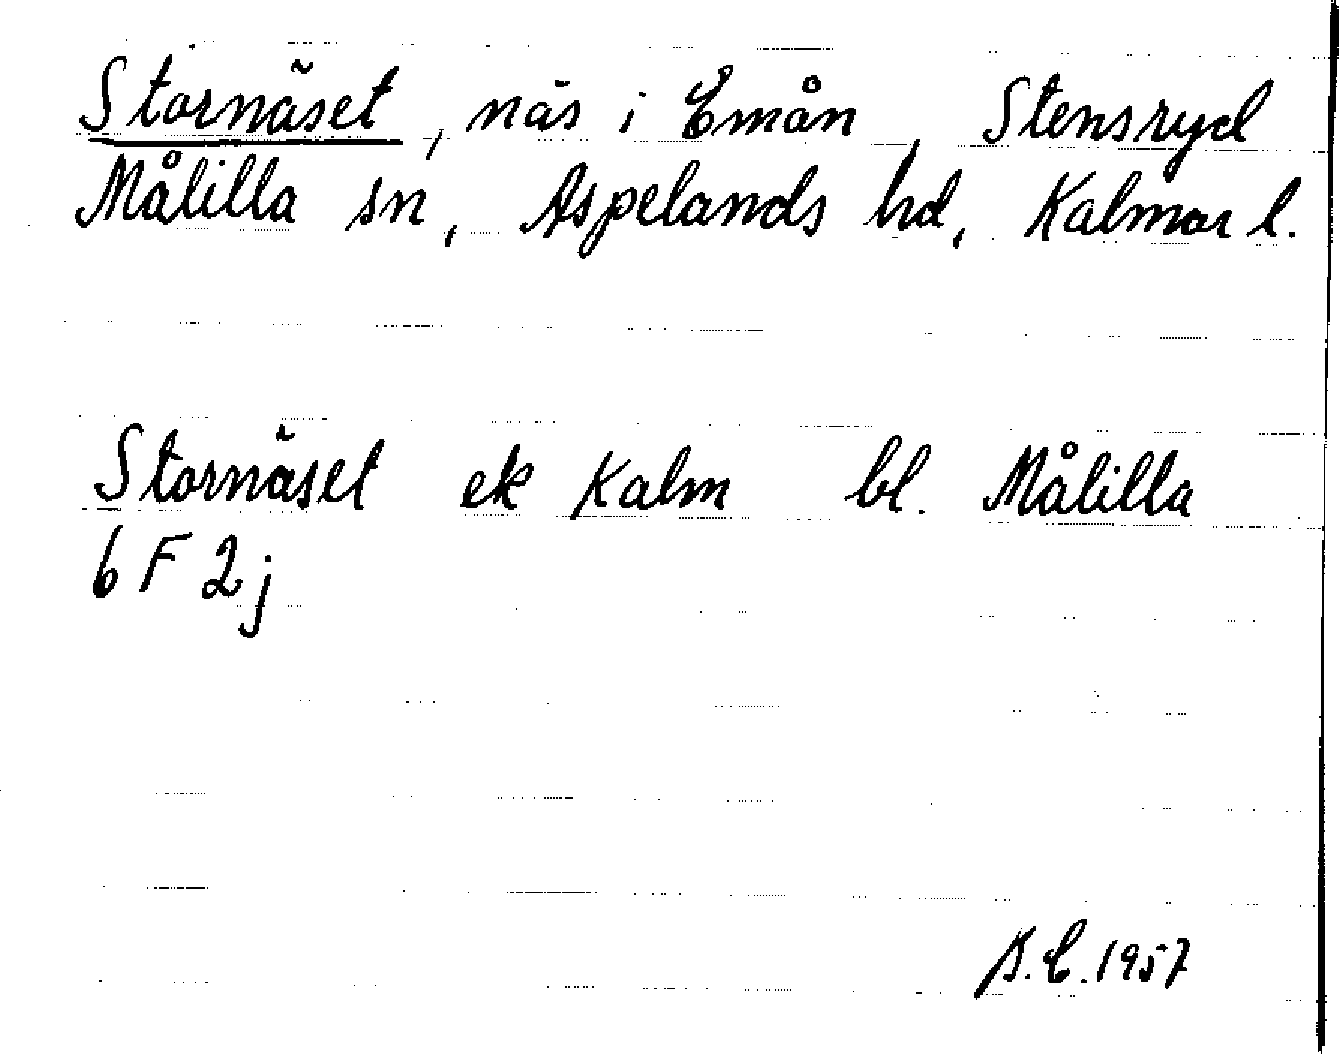 Stornäset, näs i Emån, Stensryd
Målilla sn, Aspelands hd, Kalmar l.
Stornäset ek Kalm bl. Målilla
6 F 2 j
1957